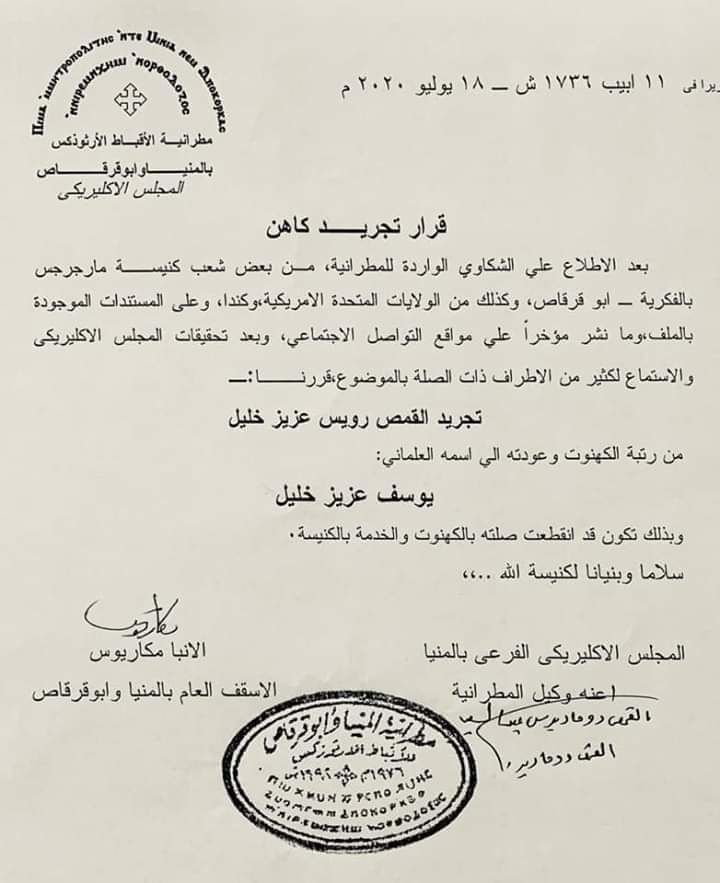 مطرانية الأقباط الأرثوذكس
بالمنيا وابوقرقاص
المجلس الاكليريكى
١١ ابيب ١٧٣٦ ش – ١٨ يوليو ٢٠٢٠ م
قرار تجريد كاهن
بعد الاطلاع علي الشكاوي الواردة للمطرانية، من بعض شعب كنيسة مارجرجس
بالفكرية – ابو قرقاص، وكذلك من الولايات المتحدة الامريكية،وكندا، وعلى المستندات الموجودة
بالملف،وما نشر مؤخراً علي مواقع التواصل الاجتماعي، وبعد تحقيقات المجلس الاكليريكى
والاستماع لكثير من الاطراف ذات الصلة بالموضوع،قررنا:–
تجريد القمص رويس عزيز خليل
من رتبة الكهنوت وعودته الي اسمه العلماني:
يوسف عزيز خليل
وبذلك تكون قد انقطعت صلته بالكهنوت والخدمة بالكنيسة.
سلاما وبنيانا لكنيسة الله ..،،
المجلس الاكليريكى الفرعى بالمنيا
عنه وكيل المطرانية
مكاريوس
الانبا مكاريوس
الاسقف العام بالمنيا وابوقرقاص
مطرانية المنيا وأبوقرقاص
للأقباط الأرثوذكس